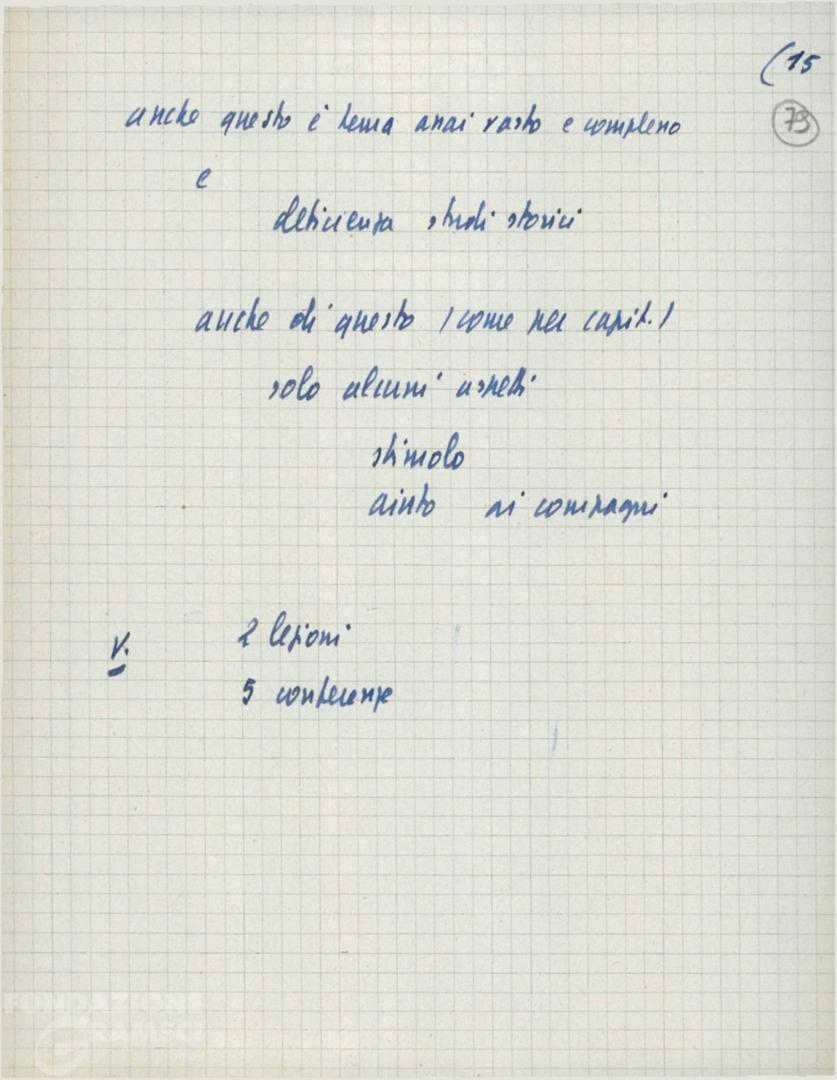 (15
79
anche questo è tema assai vasto e complesso
e
deficienza studi storici
anche di questo (come per capit.)
solo alcuni aspetti
stimolo
aiuto ai compagni
V. 2 lezioni
5 conferenze
FONDAZIONE
GRAMSCI